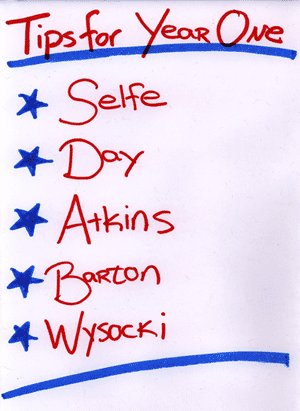 Tips for Year One
Selfe
Day
Atkins
Barton
Wysocki